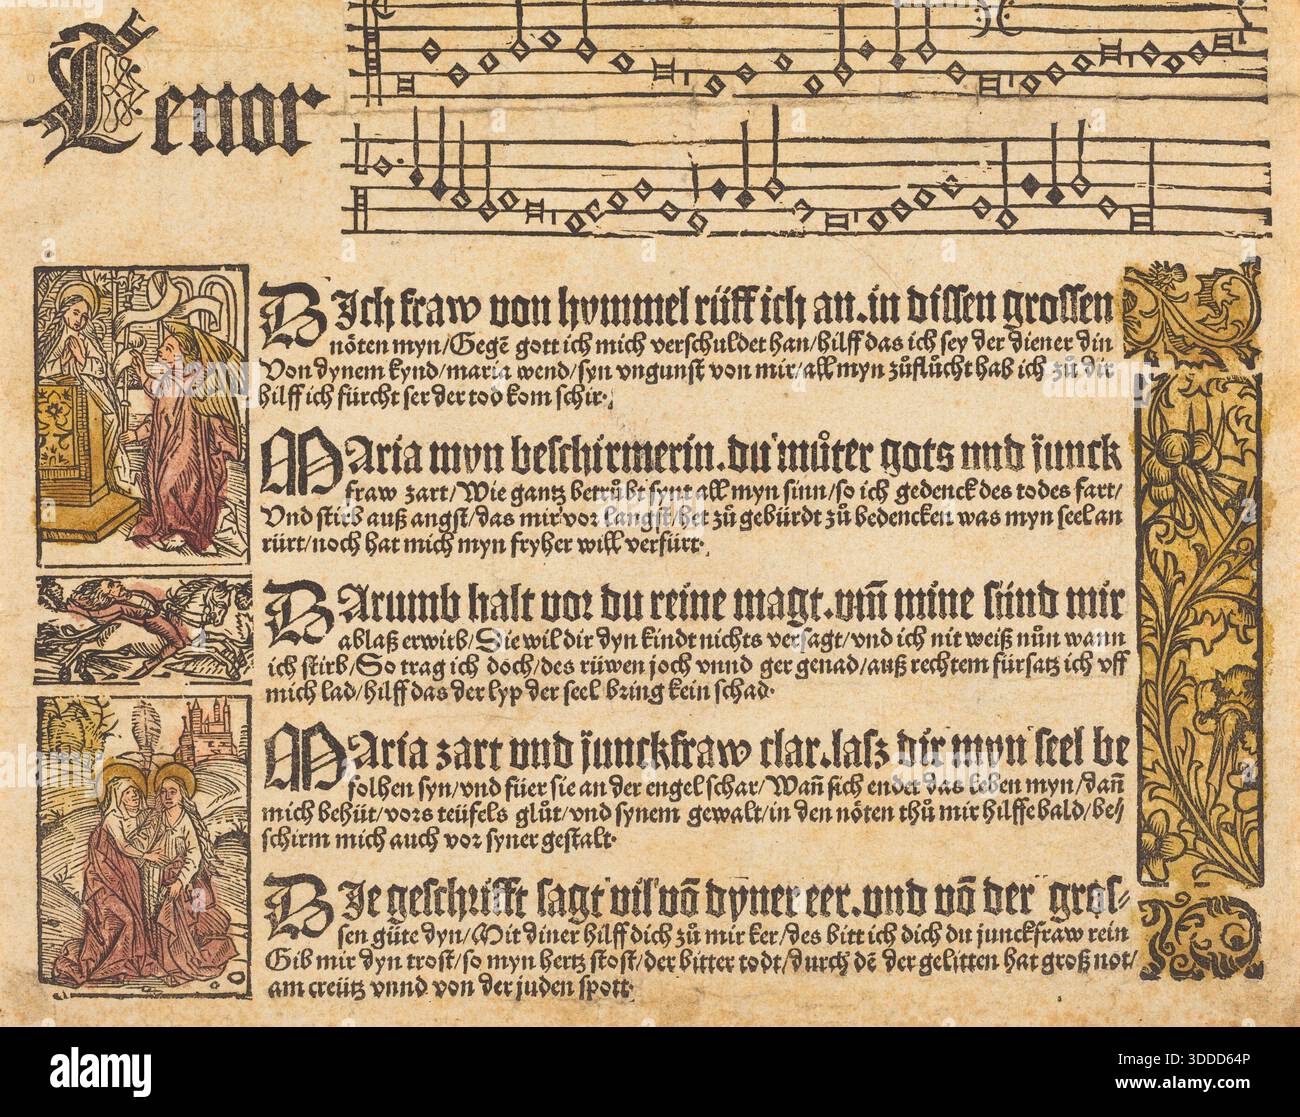 Tenor
DIch fraw von hymmel rüff ich an. in dissen grossen
nöten myn/Gegē gott ich mich verschuldet han/hilff das ich sey der diener din
Von dynem kynd/maria wend/syn vngunst von mir/all myn zůflucht hab ich zů dir
hilff ich fürcht ser der tod kom schir.
MAria myn beschirmerin. du můter gots vnd iunck
fraw zart/Wie gantz betrůbt synt all myn sinn/so ich gedenck des todes fart/
Vnd stirb auß angst/das mir vor langst/het zů gebürdt zů bedencken was myn seel an
rürt/noch hat mich myn fryher will verfürt.
DArumb halt vor du reine magt. vm̄ mine sünd mir
ablaß erwirb/Sie wil dir dyn kindt nichts versagt/vnd ich nit weiß nůn wann
ich stirb/So trag ich doch/des rüwen joch vnnd ger genad/auß rechtem fürsatz ich vff
mich lad/hilff das der lyp der seel bring kein schad.
MAria zart vnd iunckfraw clar. lasz dir myn seel be
folhen syn/vnd füer sie an der engel schar/Wañ sich endet das leben myn/dañ
mich behüt/vors teüfels glůt/vnd synem gewalt/in den nöten thů mir hilffe bald/be/
schirm mich auch vor syner gestalt.
DIe geschrifft sagt vil vō dyner eer. vnd vō der gros-
sen güte dyn/Mit diner hilff dich zů mir ker/des bitt ich dich du junckfraw rein
Gib mir dyn trost/so myn hertz stost/der bitter todt/durch dē der gelitten hat groß not/
am creütz vnnd von der juden spott.
alamy
Image ID: 3DDD64P
www.alamy.com